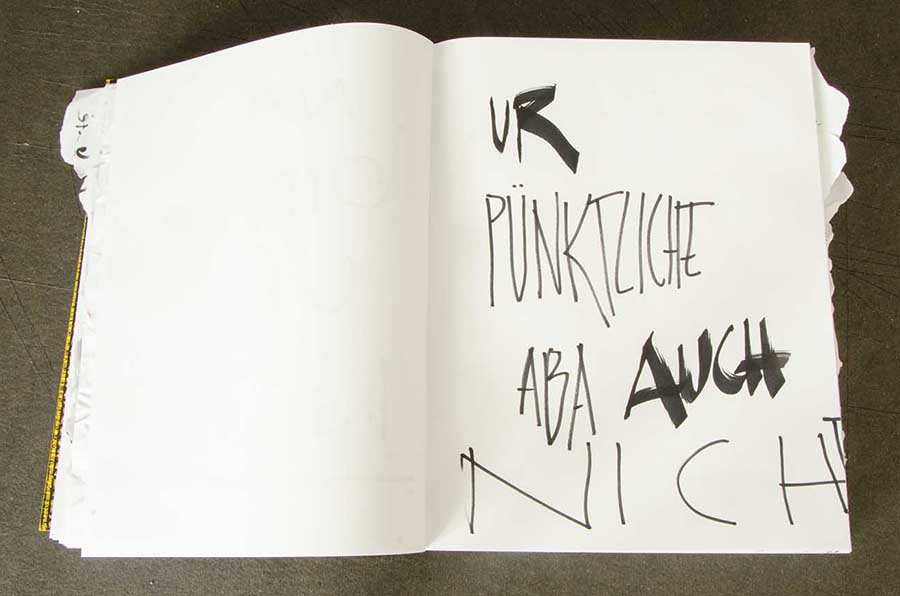 UR
PÜNKTLICHE
ABA AUCH
NICHT